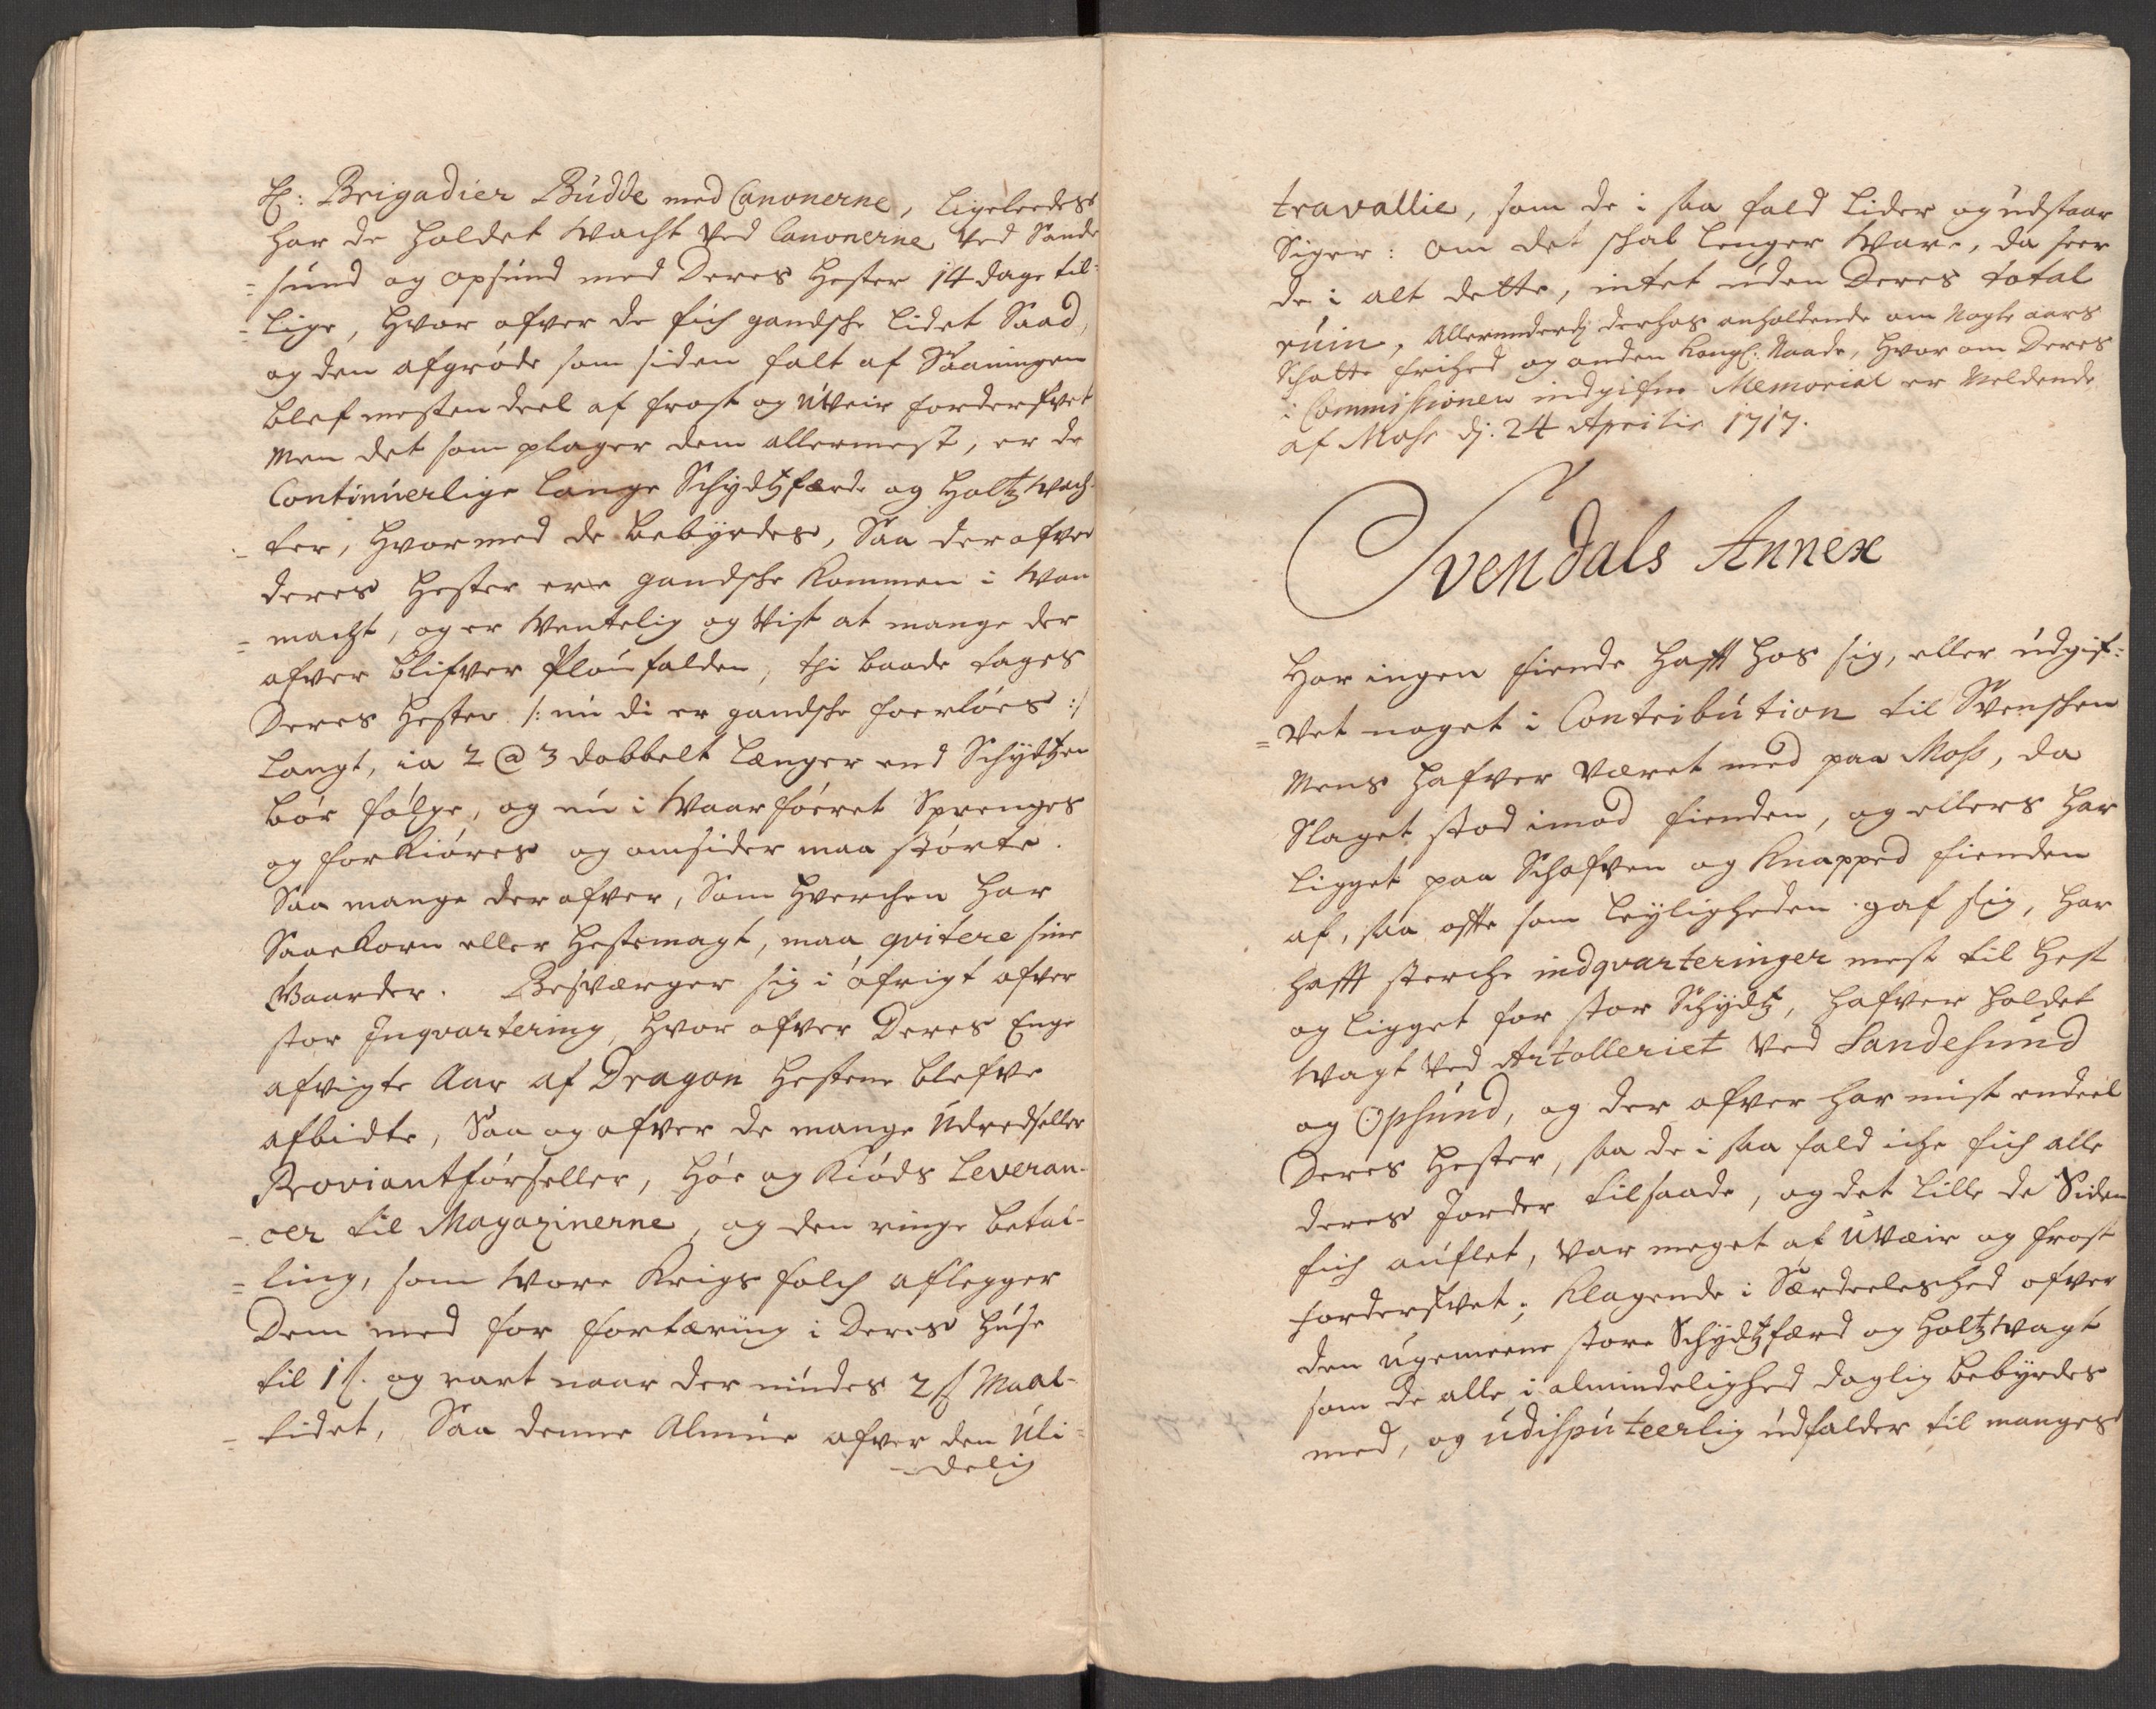 H: Brigadier Budde med Canonerne, ligeleedes
har de holdet Wacht ved Canonerne ved Sande
= sund og opsund med Deres Hester 14 dage til-
= lige, hvor ofver de fich gandsche lidet Saad,
og den afgrøde som siden falt af Saaningen
blef mesten deel af frost og uveir fordersvet
Men det som plager dem allermest, er de
Continuerlige lange Schydtzferde og Holtzwach-
- ter, hvormed de bebyrdes, Saa derofver
deres Hester ere gandsche kommen i Wan
= macht, og er Ventelig og Vist at mange der
ofver blifver Plou falden, thi baade tages
Deres Hester /: nu di er gandsche foerløes :/
langt, ia 2 @ 3 dobbelt længer end Schydtzen
bør følge, og nu i Waarføeret Sprenges
og forkiøres og omsider maa størte.
Saa mange der ofver, Som hverchen har
Saaekorn eller Hestemagt, maa qvitere sine
Gaarder. Besværger sig i øfrigt ofver
stor Inqvartering, hvor ofver Deres Enge
afvigte Aar af Dragon Hestene blefve
afbidte, Saa og ofver de mange Udredseller
Proviantførseller, Høe og Kiøds Leveran-
- cer til Magazinerne, og den ringe betal-
= ling, som Wore Krigs folch aflegger
Dem med for fortæring i Deres Huse
til 1 s. og rart naar der nindes 2 s Maal-
- tidet, Saa denne Almue ofver den Uli-
- delig
travallie, som de i saa fald lider og udstaar
Siger: om det schal lenger Ware, da seer
de i alt dette, intet uden Deres total
ruin, Allerunderd: derhos anholdende om Nogle aars
Schatte frihed og anden Kongl: Naade, hvorom Deres
i Commissionen indgifne Memorial er Meldende
af Mose dj: 24 Aprilis 1717.
Svendals Annex
Har ingen fiende hafft hos sig, eller udgif-
= vet noget i Contribution til Svenschen
Mens hafver været med paa Moss, da
Slaget stod imod fienden, og ellers har
ligget paa Schofven og Knapped fienden
af, saa ofte som leyligheden gaf sig, har
hafft sterche indqvarteringer mest til Hest
og ligget for stor Schydtz, hafver holdet
Wagt ved Artolleriet ved Sandesund
og Opsund, og der ofver har mist endeel
Deres Hester, saa de i saa fald iche fich alle
deres Jorder tilsaade, og det lille de Siden
fich auflet, var meget af uvæir og frost
fordersvet; Klagende i Særdeeleshed ofver
den ugemeene store Schydtzferd og Holtzwagt
som de alle i almindelighed daglig bebyrdes
med, og udisputeerlig udfalder til manges